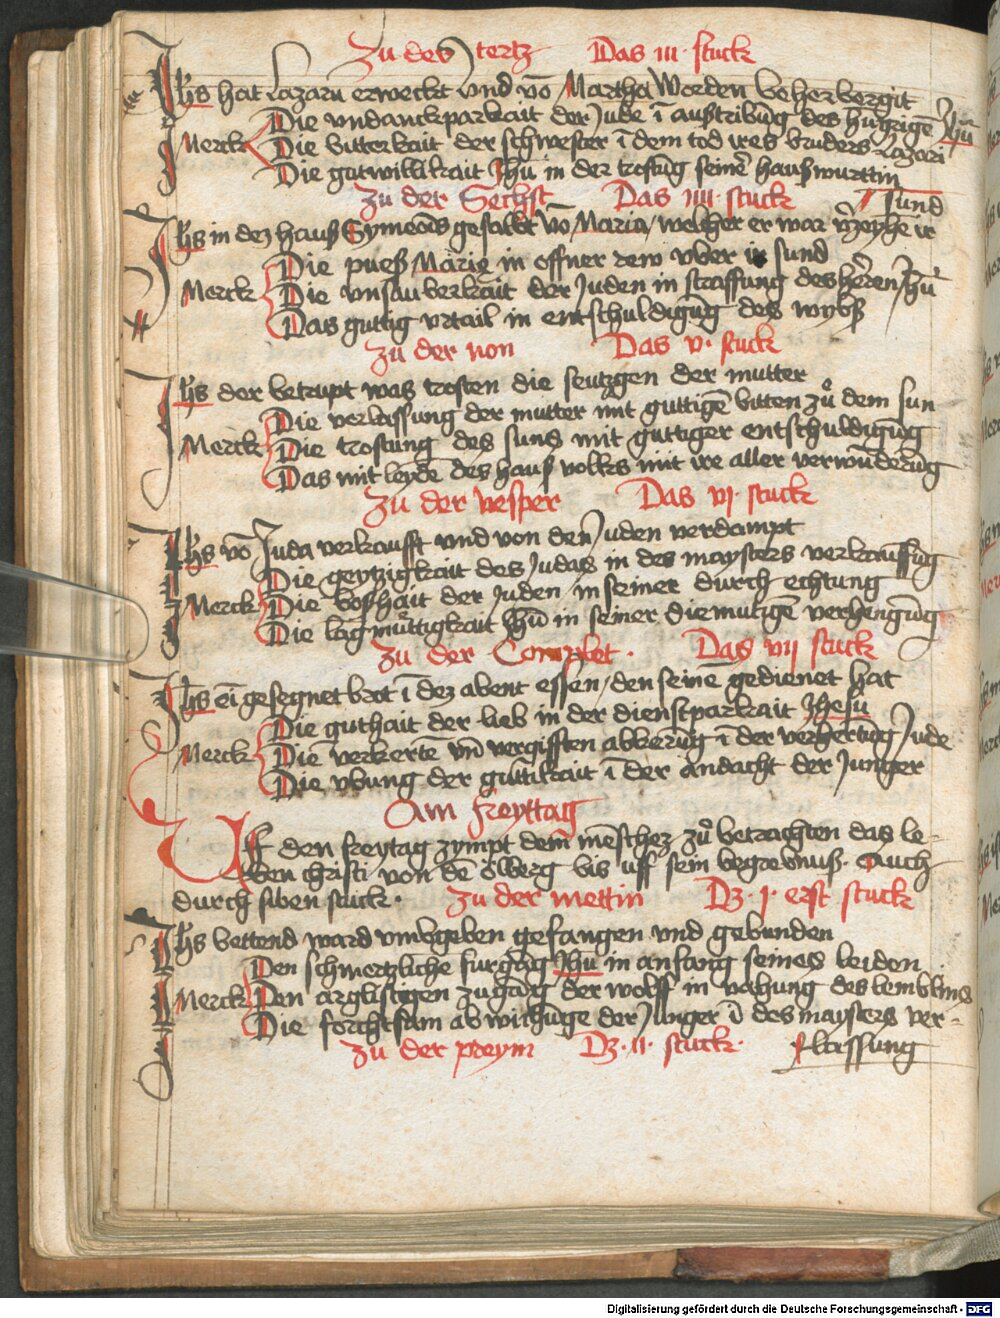 Zu der tertz Das III stuck
Jhs hat Lazaru erweckt und vō Martha Worden beherbergit
Die undanckparkait der Jude ī austribūg des hungrigē Jhū
Merck Die bitterkait der schwester ī dem tod ires bruders Lazari
Die gutwillikait Jhū in der trostūg seiner haußwurttin
Zu der Sechst Das IIII stuck sund
Jhs in dez hauß Symeōis gesalbt vō Maria / welcher er war verzeyhē ir
Die pueß Marie in offner rew uber ir sund
Merck Die unsauberkait der Juden in straffung des hērren Jhū
Das guttig urtail in entschuldigūg des wybß
Zu der non Das v. stuck
Jhs der betrupt was trosten die seutzgen der mutter
Die verlassung der mutter mit guttigē bitten zů dem sun
Merck Die trostung des suns mit guttiger entschuldigūg
Das mitleydē des hauß volks mit ire aller verwūderūg
Zu der vesper Das vj. stuck
Jhs vō Juda verkaufft und von den Juden verdampt
Die geytzigkait des Judas in des maysters verkauffūg
Merck Die boßhait der Juden in seiner durch echtung
Die lāgmůttigkait Jhū in seiner diemutigē verhengūg
Zu der Complet. Das vij stuck
Jhs ein gesegnet brot ī dez abent essen / den seinē gedienet hat
Die guthait der lieb in der dienstparkait Jhesu
Merck Die verkertē vñ vergifften abkerūg ī der verhertūg Jude
Die ubung der guttikait ī der andacht der Junger
Am freyttag
Uff den freytag zympt dem mēschez zů betrachten das le-
ben christi von dē ölberg bis uff sein begrebnuß. Auch
durch siben stuck. Zu der mettin Dz. I. erst stuck
Jhs bettend ward umbgeben gefangen und gebunden
Den schmertzliche furgāg Jhū in anfang seines leiden
Merck Den arglistigen zugāg der wolff in vahung des lemblins
Die forchtsam abwichūge der Junger ī des maysters ver-
Zu der preym Dz. II. stuck. lassung
Digitalisierung gefördert durch die Deutsche Forschungsgemeinschaft - DFG